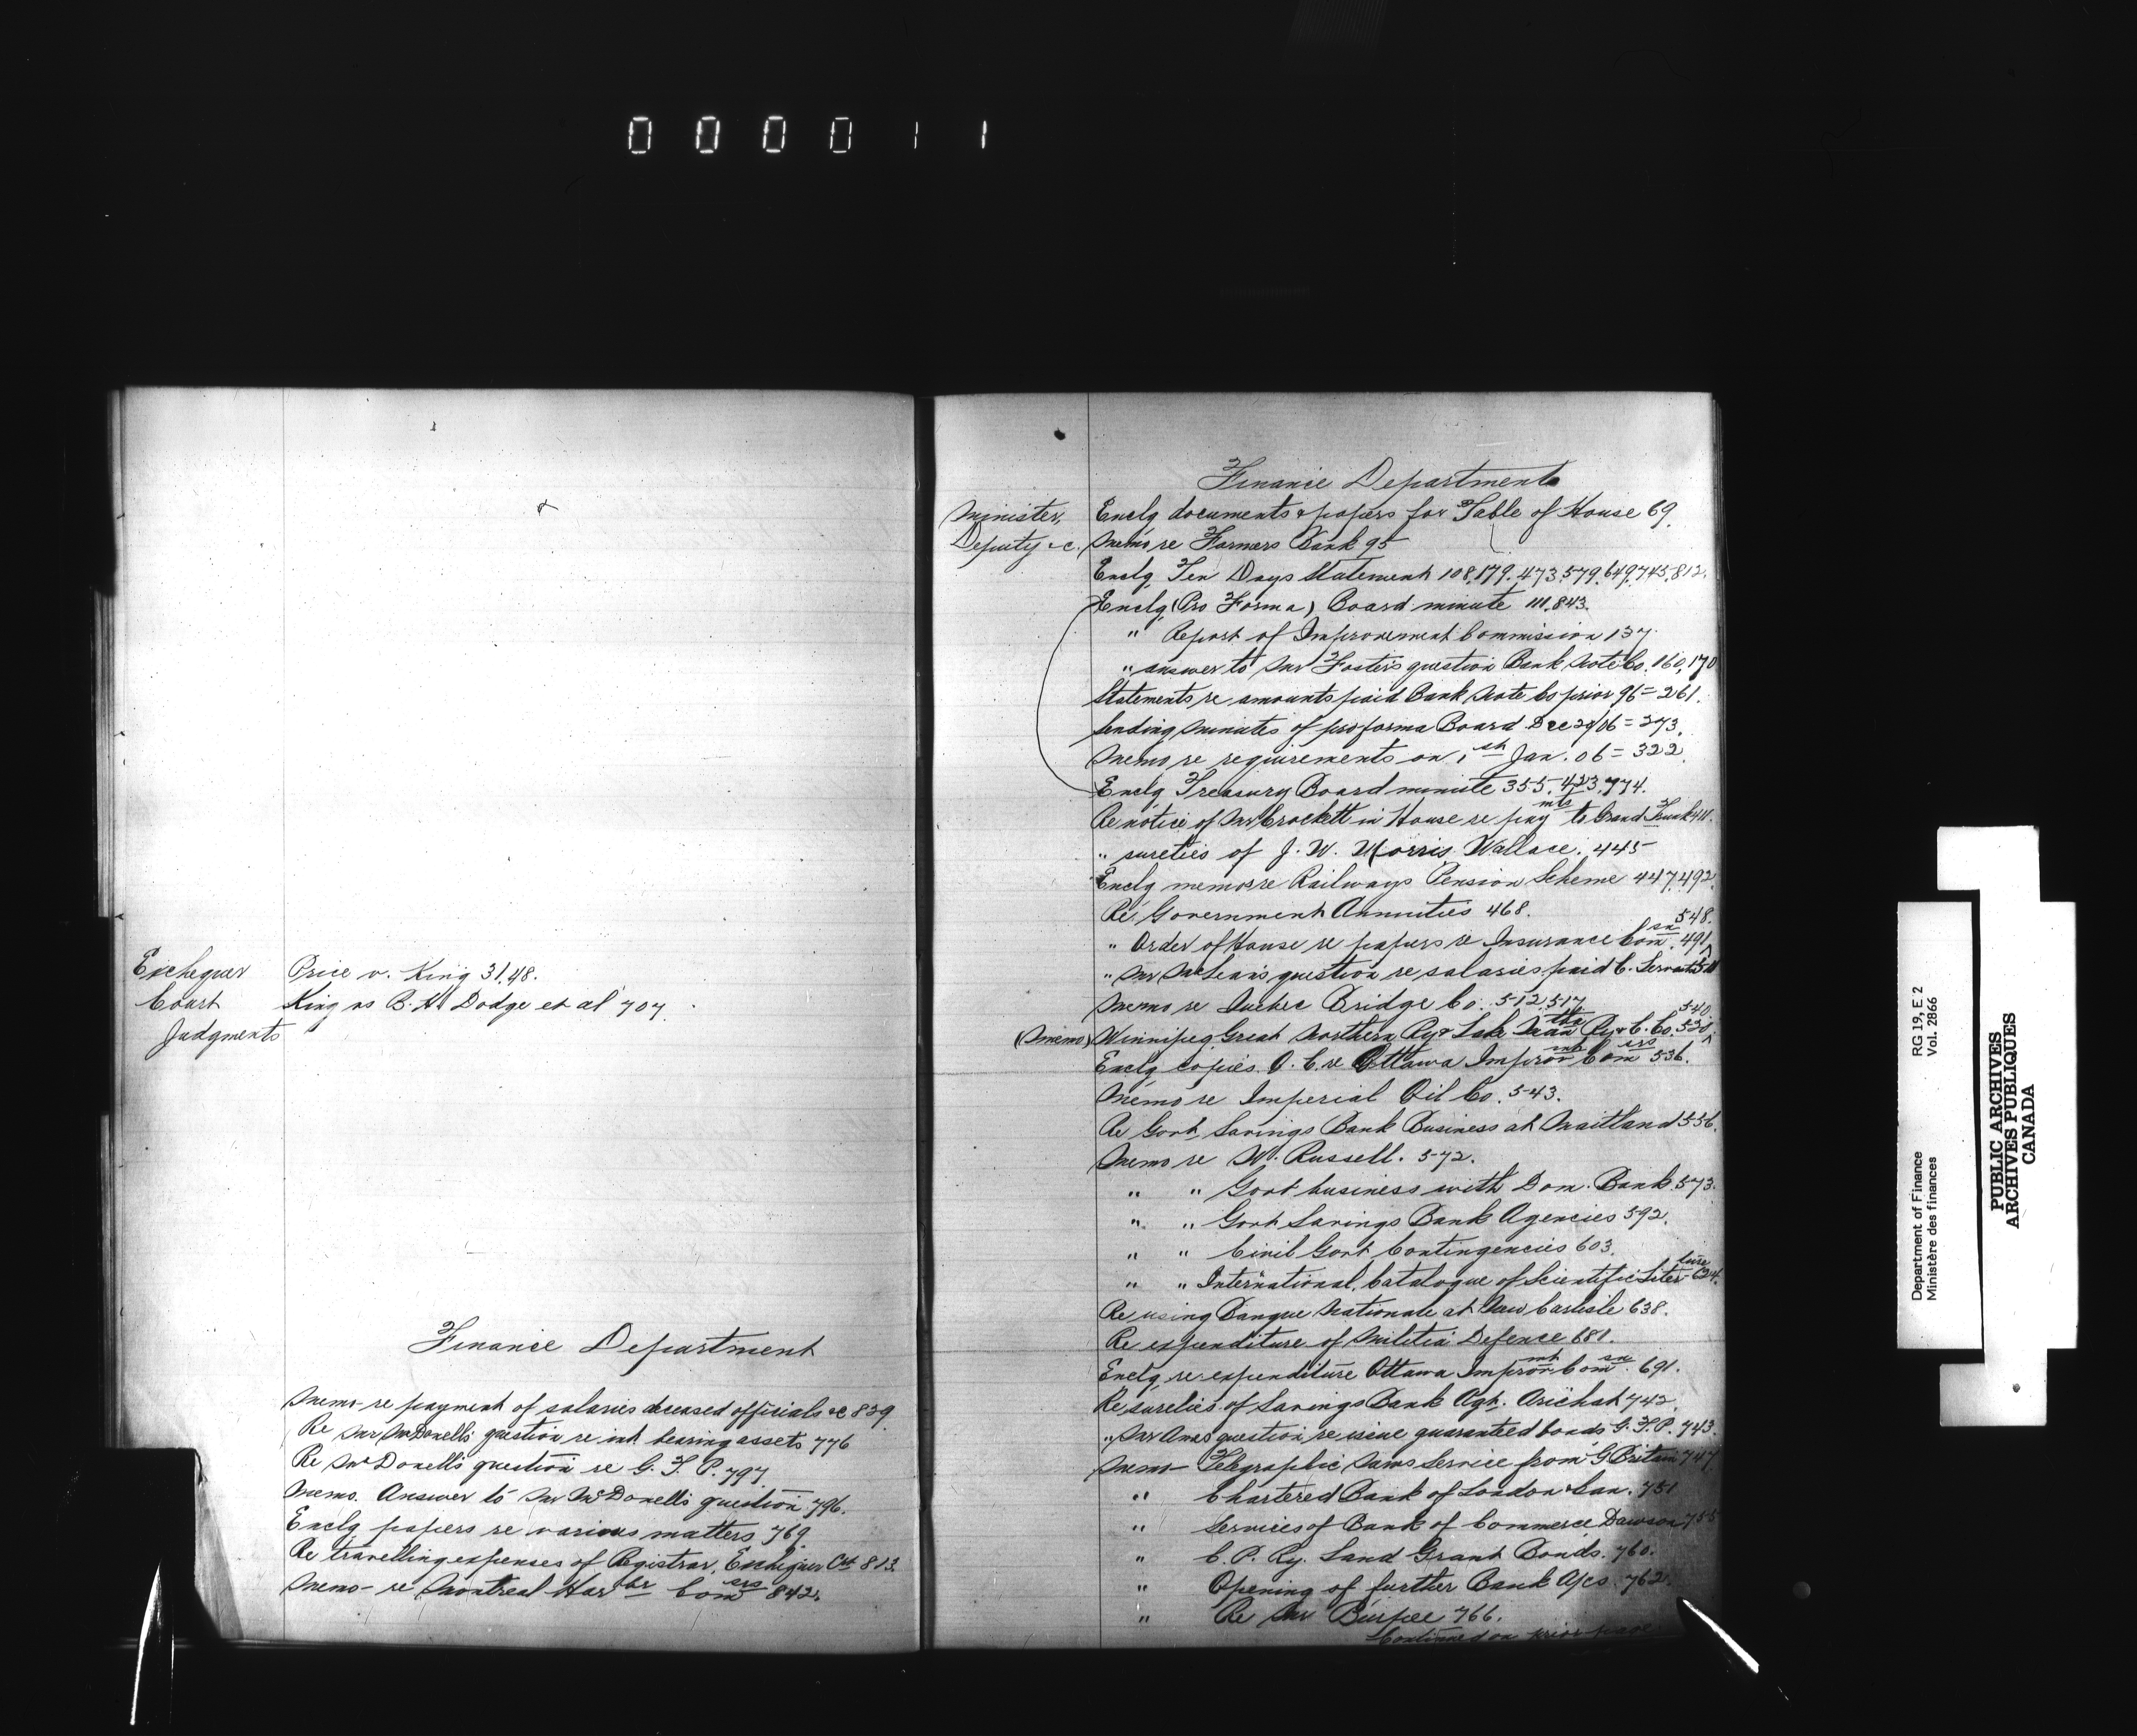 000011
Exchequer Price v. King 31.48.
Court King vs B. H. Dodge et al 707.
Judgments
Finance Department
Memo re payment of salaries deceased officials &c 829
Re Mr McDonell's question re int bearing assets 776
Re McDonell's question re G. T. P. 797
Memo. Answer to Mr McDonell's question 796.
Enclg papers re various matters 769.
Re travelling expenses of Registrar, Exchequer Ct 813.
Memo - re Montreal Harbr Comers 842.
Finance Department
Minister, Enclg documents & papers for Table of House 69.
Deputy &c. Memo re Farmers Bank 95
Enclg Ten Days Statement 108, 179, 473, 579, 649, 745, 812.
Enclg (Pro Forma) Board minute 111, 843.
" Report of Improvement Commission 137.
" answer to Mr Foster's question Bank Note Co. 160, 170
Statements re amounts paid Bank Note Co prior 96 = 261.
Sending minutes of pro forma Board Dec 29/06 = 273.
Memo re requirements on 1st Jan. 06 = 322.
Enclg Treasury Board minute 355, 423, 774.
Re notice of Mr Crockett in House re paymts to Grand Trunk 411.
" sureties of J. W. Morris, Wallace. 445
Enclg memos re Railways Pension Scheme 447, 492.
Re Government Annuities 468.
" Order of House re papers re Insurance Comsn. 491, 548.
" Mr McLean's question re salaries paid C. Servants 511
Memo re Quebec Bridge Co. 512, 517
(Memo) Winnipeg Great Northern Ry & Lake Mantba Ry & C. Co. 530, 540
Enclg copies O. C. re Ottawa Improvmt Comers 536.
Memo re Imperial Oil Co. 543.
Re Govt Savings Bank Business at Maitland 556.
Memo re W. Russell. 572.
" " Govt business with Dom. Bank 573.
" " Govt Savings Bank Agencies 592.
" " Civil Govt Contingencies 603.
" " International Catalogue of Scientific Literature 624.
Re using Banque Nationale at New Carlisle 638.
Re expenditure of Militia Defence 681.
Enclg re expenditure Ottawa Improvmt Comsn. 691.
Re sureties of Savings Bank Agt. Arichat 742.
" Mr Ames question re issue guaranteed bonds G. T. P. 743.
Memo - Telegraphic News Service from G Britain 747
" Chartered Bank of London & Can. 751
" Services of Bank of Commerce Dawson 755
" C. P. Ry. Land Grant Bonds. 760.
" Opening of further Bank A/cs 762.
" Re Mr Burpee 766.
Continued on prior page
Department of Finance RG 19, E 2
Ministère des finances Vol. 2866
PUBLIC ARCHIVES
ARCHIVES PUBLIQUES
CANADA